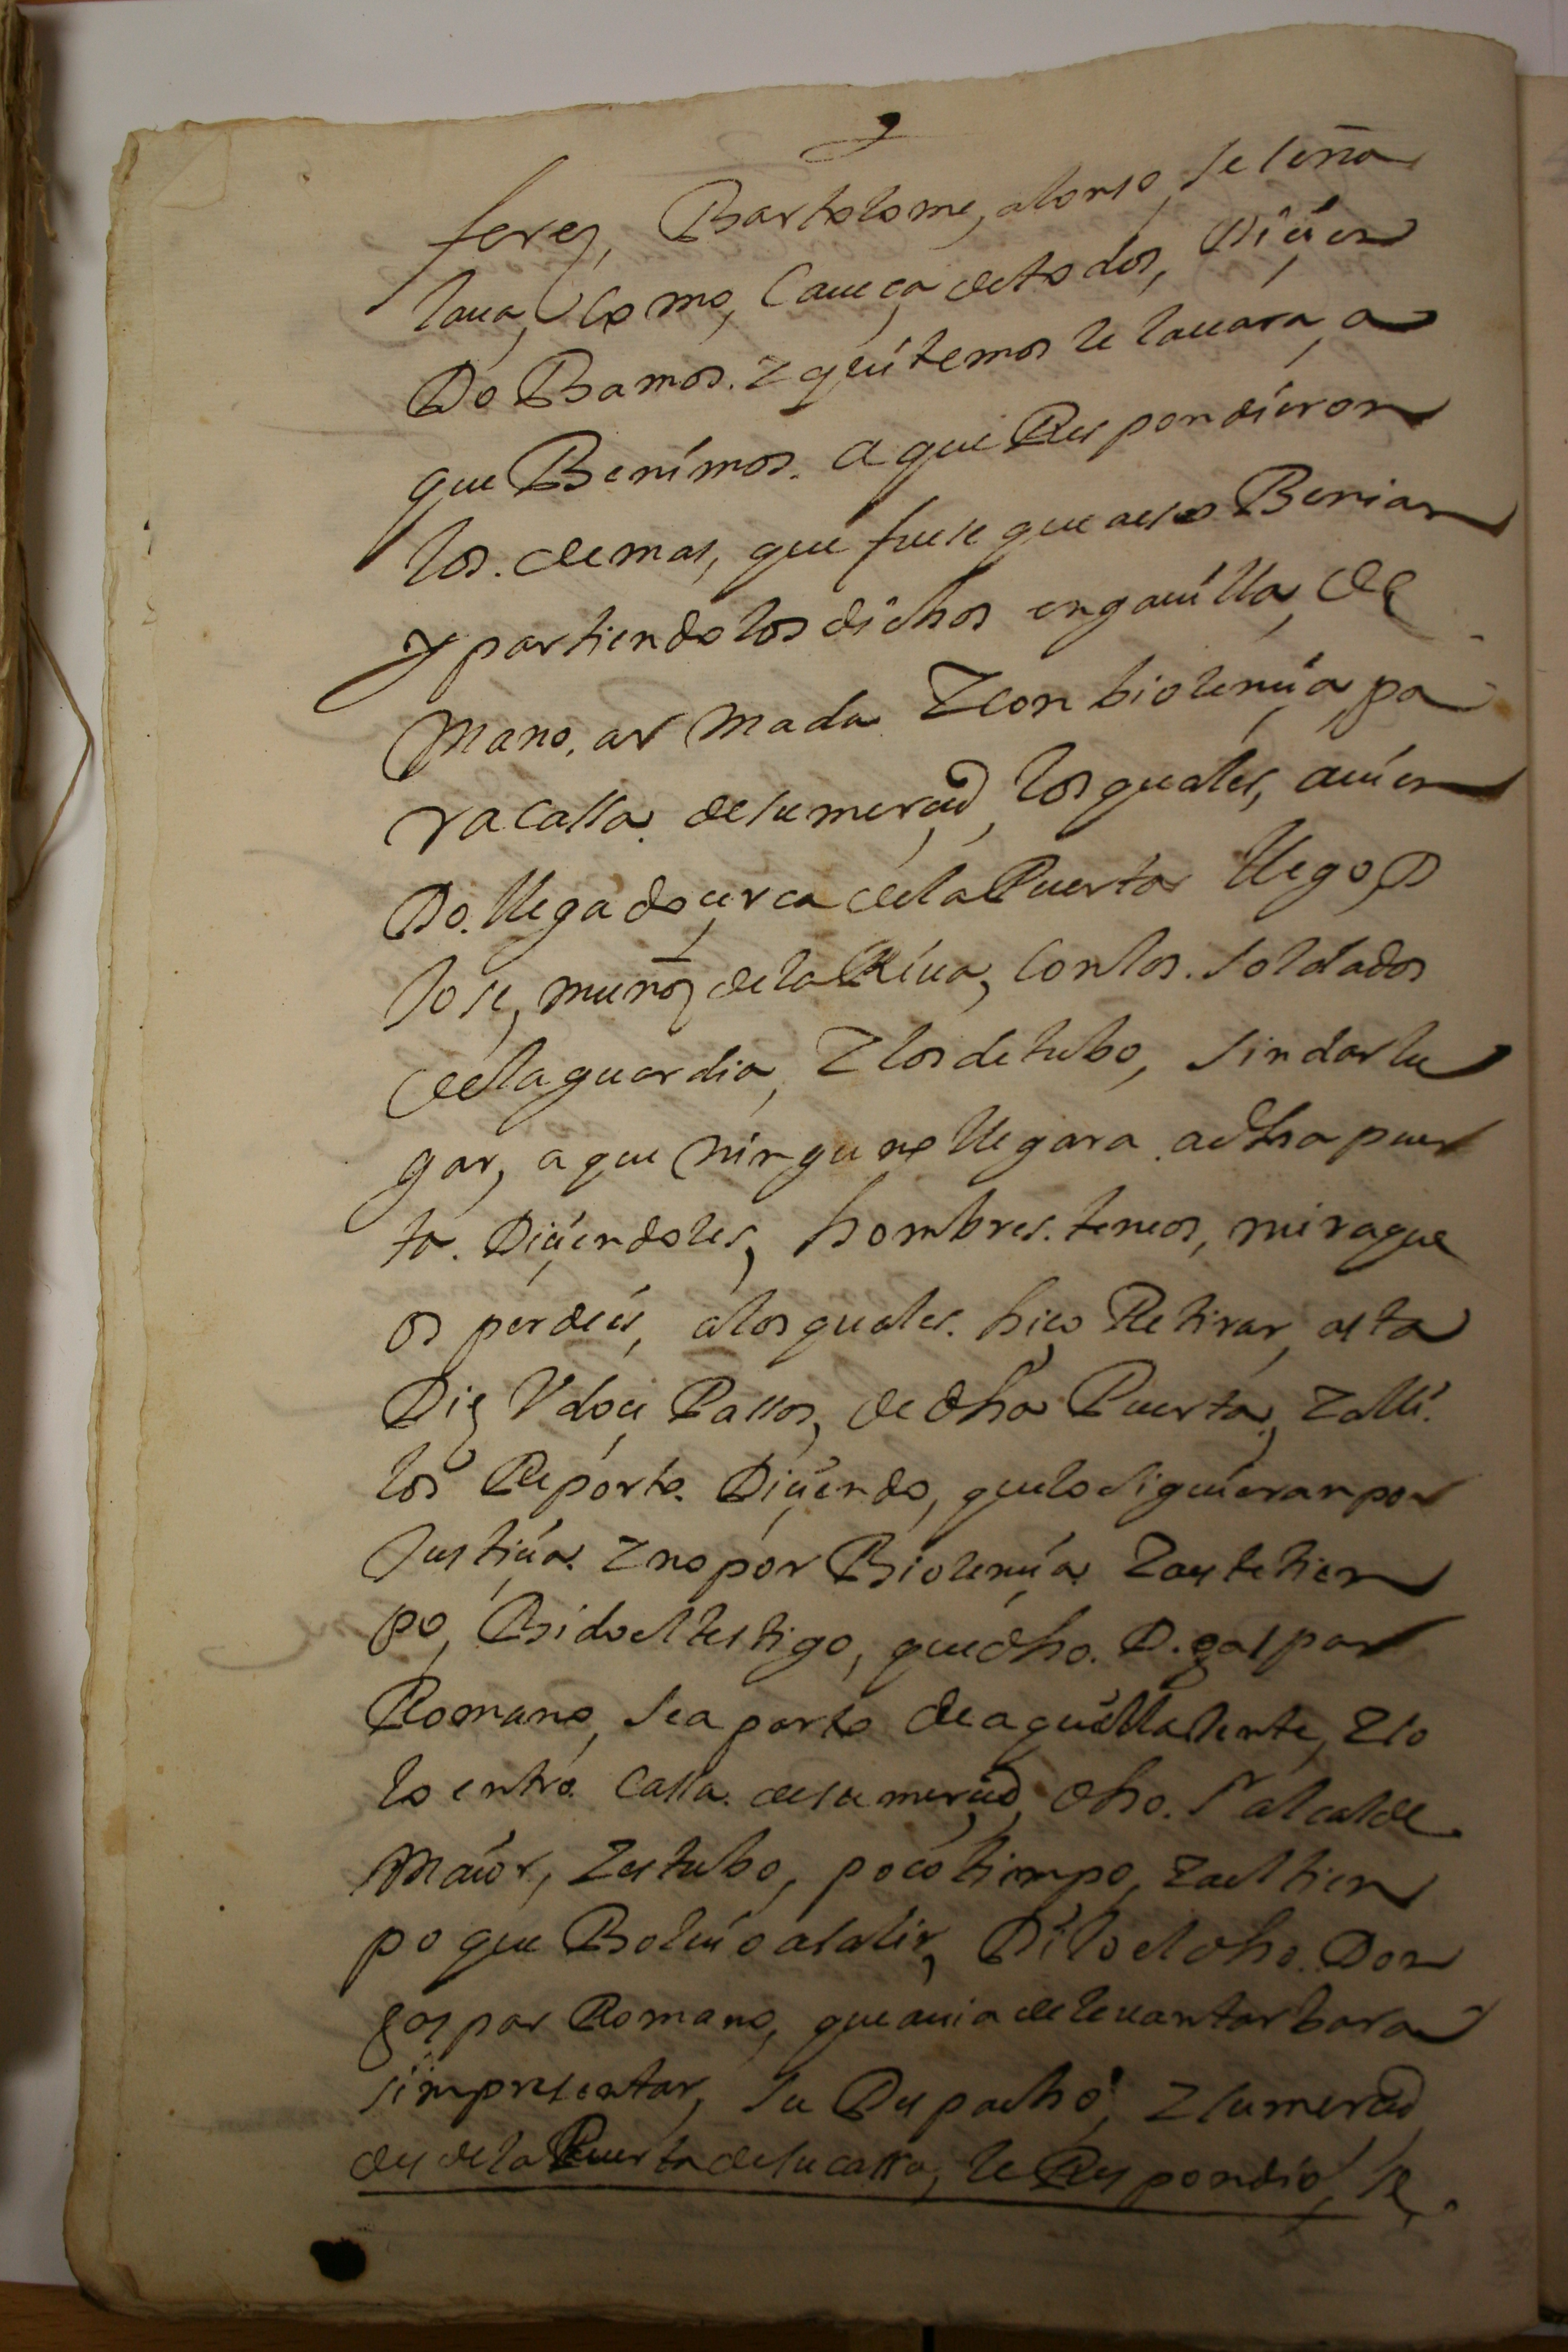 ferez, Bartolome, alonso, se seña
laua, Como, Caueça de todos, Diçien
Do Bamos. z quitemosle la uara, a
que Benimos. a que Respondieron
los. demas, que fuese que a eso Benian
y partiendo los dichos en gauilla, de
Mano, armada z con biolençia, pa
ra cassa. de su merçed, los quales, auien
Do. llegado çerca de la Puerta llego, D
Jose, muñoz de la Riua, Con los. soldados
de la guardia, z los detubo, sin dar lu
gar, a que ninguno llegara. a dha puer
ta. Diçiendoles, hombres. teneos, mira que
os perdeis, a los quales. hiço Retirar, asta
Diez V doçe Passos, de dha Puerta, z alli.
los Reporto. Diçiendo, que lo siguieran por
Justiçia. z no por Biolençia. z a este tiem
po, Bido el testigo, que dho. D. gaspar
Romano, se aparto de aquella Jente, z so
lo entro. Cassa. de su merçed, dho. Sr alcalde
Maior, z estubo, poco tiempo, z a el tiem
po que Boluio a salir, Dijo el dho. Don
gaspar Romano, que auia de leuantar bara
sin presentar, su Despacho, z su merçed
desde la Puerta de su cassa, le Respondio, se